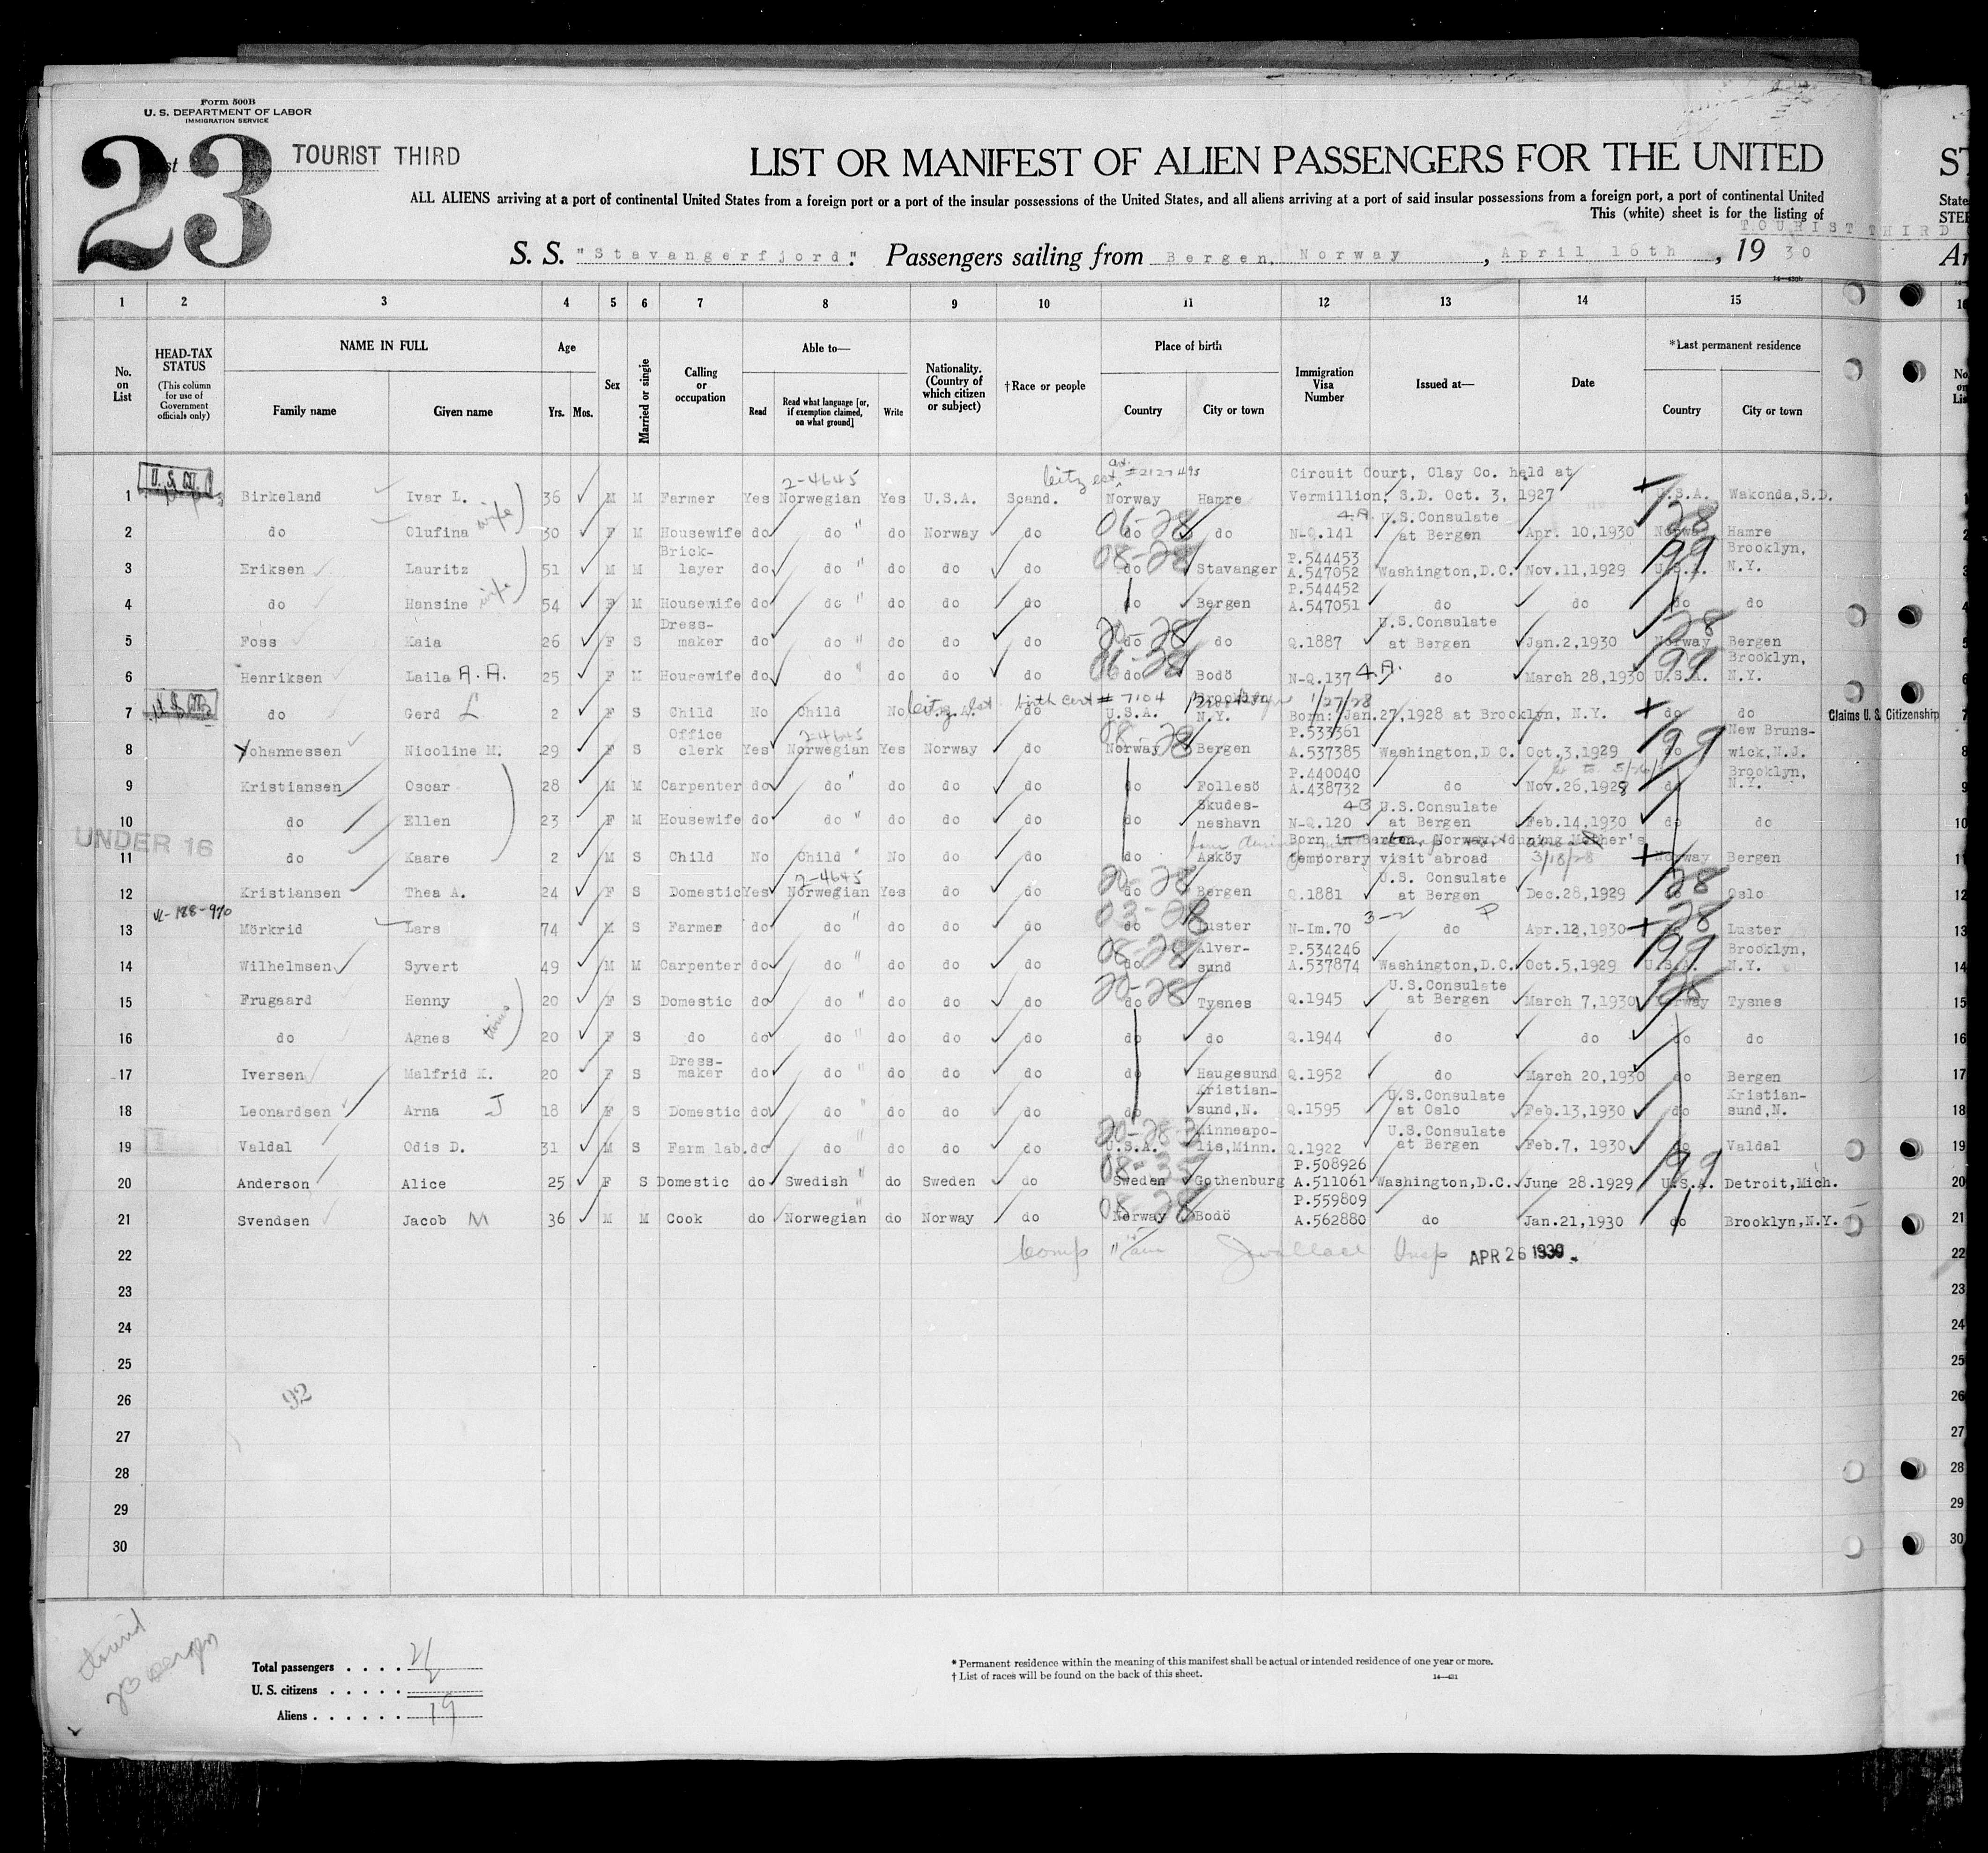 Form 500B
U. S. DEPARTMENT OF LABOR
IMMIGRATION SERVICE
23
TOURIST THIRD
LIST OR MANIFEST OF ALIEN PASSENGERS FOR THE UNITED
ST
ALL ALIENS arriving at a port of continental United States from a foreign port or a port of the insular possessions of the United States, and all aliens arriving at a port of said insular possessions from a foreign port, a port of continental United
State
This (white) sheet is for the listing of
STEE
TOURIST THIRD
S. S. "Stavangerfjord". Passengers sailing from Bergen, Norway, April 16th, 19 30
Ar
1 2 3 4 5 6 7 8 9 10 11 12 13 14 15
No. on List
HEAD-TAX STATUS (This column for use of Government officials only)
NAME IN FULL
Family name Given name
Age
Yrs. Mos.
Sex
Married or single
Calling or occupation
Able to—
Read Read what language [or, if exemption claimed, on what ground] Write
Nationality. (Country of which citizen or subject)
†Race or people
Place of birth
Country City or town
Immigration Visa Number
Issued at—
Date
*Last permanent residence
Country City or town
U. S. CIT.
2-4645
#2127495
Circuit Court, Clay Co. held at
1 Birkeland Ivar L. 36 M M Farmer Yes Norwegian Yes U.S.A. Scand. Norway Hamre Vermillion, S.D. Oct. 3, 1927 U.S.A. Wakonda, S.D.
2 do Olufina wife 30 F M Housewife do do " do Norway do 06-28 do do N-Q.141 4A U.S.Consulate at Bergen Apr. 10,1930 28 Norway Hamre
3 Eriksen Lauritz 51 M M Brick-layer do do " do do do 08-28 do Stavanger P.544453 A.547052 Washington,D.C. Nov.11,1929 99 U.S.A. Brooklyn, N.Y.
4 do Hansine wife 54 F M Housewife do do " do do do do Bergen P.544452 A.547051 do do do do
5 Foss Kaia 26 F S Dress-maker do do " do do do 20-28 do do Q.1887 U.S.Consulate at Bergen Jan.2,1930 28 Norway Bergen
6 Henriksen Laila A.A. 25 F M Housewife do do " do do do 06-28 do Bodö N-Q.137 4A. do March 28,1930 99 U.S.A. Brooklyn, N.Y.
birth cert # 7104 1/27/28
7 do Gerd L 2 F S Child No Child No U.S.A. do U.S.A. Brooklyn N.Y. Born: Jan.27,1928 at Brooklyn, N.Y. do do Claims U.S. Citizenship
8 Yohannessen Nicoline M. 29 F S Office clerk Yes 2-4645 Norwegian Yes Norway do 08-28 Norway Bergen P.533361 A.537385 Washington,D.C. Oct.3,1929 99 do New Bruns-wick,N.J.
9 Kristiansen Oscar 28 M M Carpenter do do " do do do do Follesö P.440040 A.438732 do Nov.26,1928 do Brooklyn, N.Y.
10 do Ellen 23 F M Housewife do do " do do do do Skudes-neshavn N-Q.120 U.S.Consulate at Bergen Feb.14,1930 do do
UNDER 16
11 do Kaare 2 M S Child No Child " No do do do Asköy Born in Bergen, Norway, during Mother's temporary visit abroad 3/18/28 Norway Bergen
12 Kristiansen Thea A. 24 F S Domestic Yes 2-4645 Norwegian Yes do do 20-28 do Bergen Q.1881 U.S. Consulate at Bergen Dec.28,1929 28 do Oslo
13 Mörkrid Lars 74 M S Farmer do do " do do do 03-28 do Luster N-Im.70 3-2 do Apr.12,1930 28 do Luster
14 Wilhelmsen Syvert 49 M M Carpenter do do " do do do 08-28 do Alver-sund P.534246 A.537874 Washington,D.C. Oct.5,1929 99 U.S.A. Brooklyn, N.Y.
15 Frugaard Henny 20 F S Domestic do do " do do do 20-28 do Tysnes Q.1945 U.S.Consulate at Bergen March 7,1930 28 Norway Tysnes
16 do Agnes twins 20 F S do do do " do do do do do Q.1944 do do do do
17 Iversen Malfrid K. 20 F S Dress-maker do do " do do do do Haugesund Q.1952 do March 20,1930 do Bergen
18 Leonardsen Arna J 18 F S Domestic do do " do do do do Kristian-sund,N. Q.1595 U.S.Consulate at Oslo Feb.13,1930 do Kristian-sund,N.
19 Valdal Odis D. 31 M S Farm lab. do do " do do do 20-28-3 U.S.A. Minneapo-lis,Minn. Q.1922 U.S.Consulate at Bergen Feb.7, 1930 do Valdal
20 Anderson Alice 25 F S Domestic do Swedish " do Sweden do 08-35 Sweden Gothenburg P.508926 A.511061 Washington,D.C. June 28.1929 99 U.S.A. Detroit,Mich.
21 Svendsen Jacob M 36 M M Cook do Norwegian do Norway do 08-28 Norway Bodö P.559809 A.562880 do Jan.21,1930 do Brooklyn,N.Y.
22 Insp APR 26 1930
23
24
25
26 92
27
28
29
30
Total passengers . . . . 21
U. S. citizens . . . . . 2
Aliens . . . . . . 19
* Permanent residence within the meaning of this manifest shall be actual or intended residence of one year or more.
† List of races will be found on the back of this sheet.